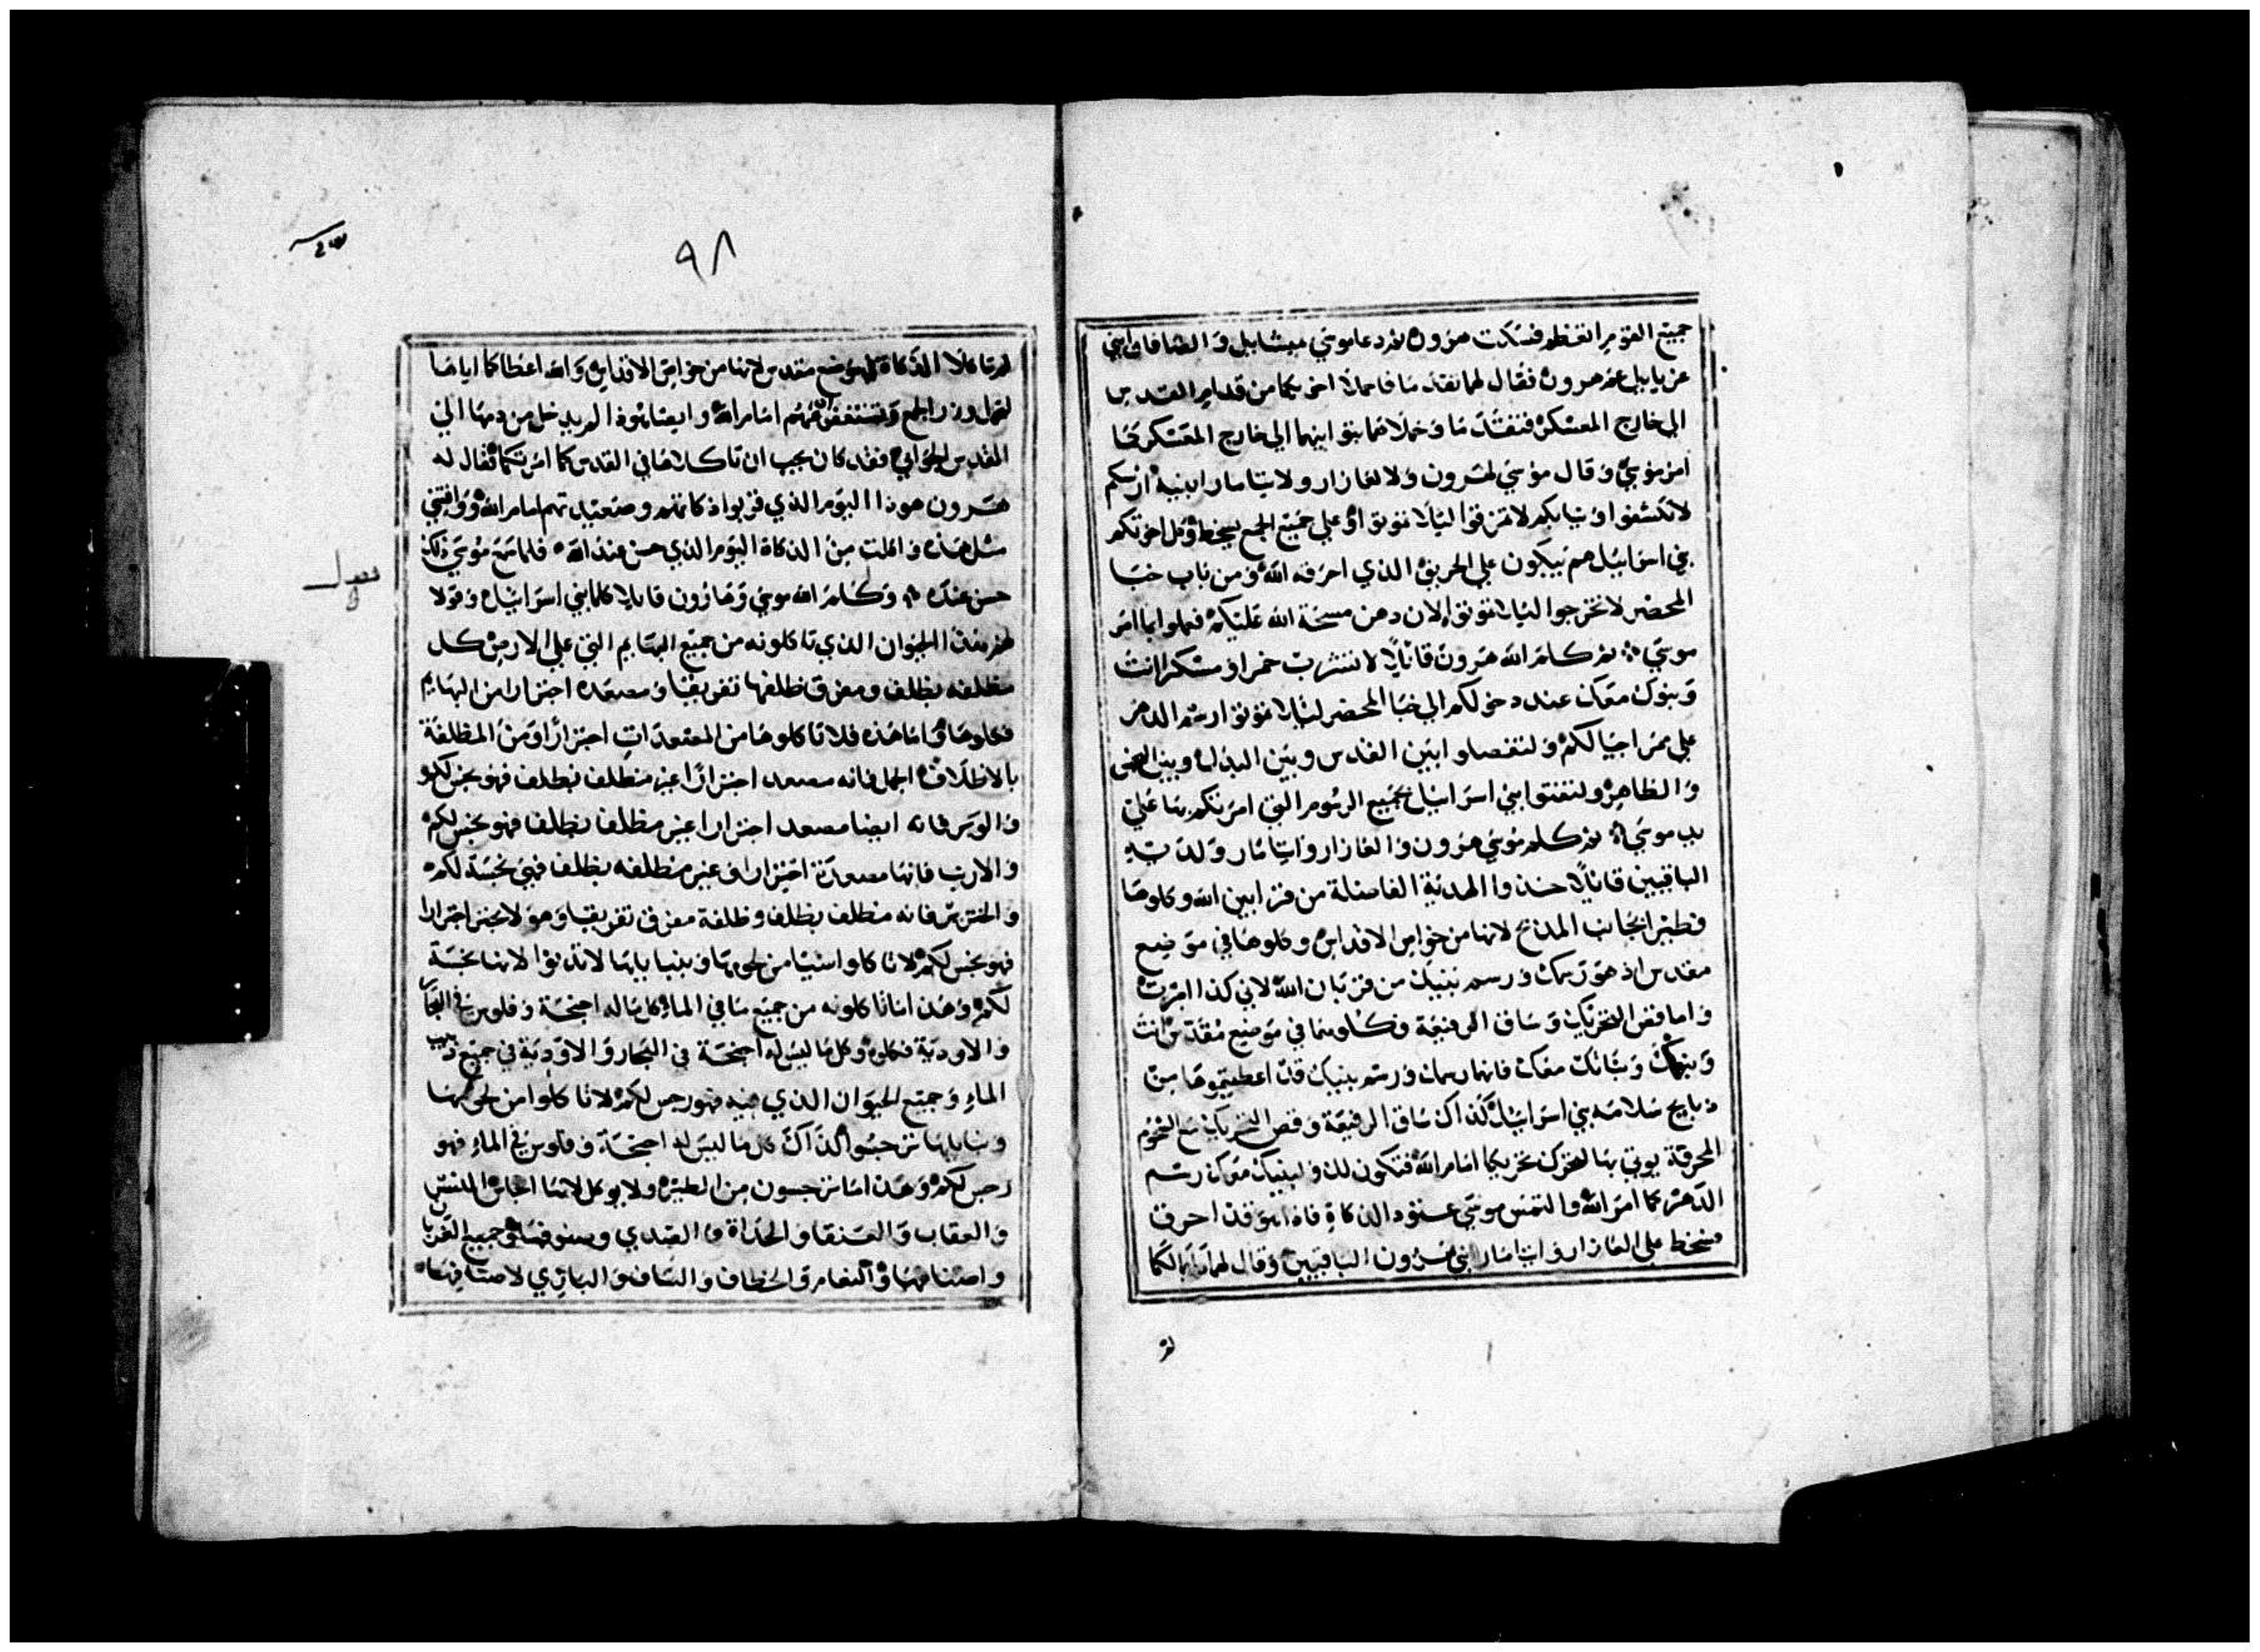 جميع القوم اتعظم فسكت هرون ثم دعا موسي ميشاييل والصافان ابني
عزياييل عم هرون فقال لهما تقدما فاحملا اخويكما من قدام القدس
الي خارج المعسكر فتقدما وحملاهما بتوابيهما الي خارج المعسكر كما
امر موسي وقال موسي لهرون ولالعازار ولايتامار ابنيه ارؤسكم
لا تكشفوا وثيابكم لا تمزقوا ليلا تموتوا وعلي جميع الجمع يسخط وكل اخوتكم
بني اسراييل هم يبكون علي الحريق الذي احرقه الله ومن باب خبا
المحضر لا تخرجوا ليلا تموتوا لان دهن مسحة الله عليكم فعملوا بما امر
موسي ثم كلم الله هرون قائلا لا تشرب خمرا ومسكرا انت
وبنوك معك عند دخولكم الي خبا المحضر ليلا تموتوا رسم الدهر
علي ممر اجيالكم ولتفصلوا بين القدس وبين البذل وبين النجس
والطاهر ولتفتوا بني اسراييل بجميع الرسوم التي امرتكم بها علي
يد موسي ثم كلم موسي هرون والعازار وايتامار ولديه
الباقيين قائلا خذوا الهدية الفاضلة من قرابين الله وكلوها
فطيرا بجانب المذبح لانها من خواص الاقداس وكلوها في موضع
مقدس اذ هو رسمك ورسم بنيك من قربان الله لاني كذا امرت
واما قص التحريك وساق الرفيعة فكلوهما في موضع مقدس انت
وبنوك وبناتك معك فانها رسمك ورسم بنيك قد اعطيتموها من
ذبايح سلامة بني اسراييل كذاك ساق الرفيعة وقص التحريك مع الشحوم
المحرقة يوتي بها لتحرك تحريكا امام الله فتكون لك ولبنيك معك رسم
الدهر كما امر الله والتمس موسي عتود الذكاة فاذا هو قد احرق
فسخط علي العازار وايتامار ابني هرون الباقيين وقال لهما ما بالكما
لم
٩٨
لم تاكلا الذكاة في موضع مقدس لانها من خواص الاقداس والله اعطاكما اياها
لتحمل وزر الجمع وتستغفر عنهم امام الله وايضا هوذا لم يدخل من دمها الي
القدس الجواني فقد كان يجب ان تاكلاها في القدس كما امرتكما فقال له
هرون هوذا اليوم الذي قربوا ذكاتهم وصعيدتهم امام الله ووافتني
مثل هذه واكلت من الذكاة اليوم الذي حسن عند الله فلما سمع موسي ذلك
حسن عنده وكلم الله موسي وهارون قايلا كلما بني اسراييل وقولا
لهم هذا الحيوان الذي تاكلونه من جميع البهايم التي علي الارض كل
مظلفه بظلف ومفرق ظلفها تفريقا ومصعده اجترارا من البهايم
فكلوها واما هذه فلا تاكلوها من المصعدات اجترارا ومن المظلفة
بالاظلاف الجمل فانه مصعد اجترارا غير مظلف بظلف فهو نجس لكم
والوبر فانه ايضا مصعد اجترارا غير مظلف بظلف فهو نجس لكم
والارنب فانها مصعدة اجترارا وغير مظلفه بظلف فهي نجسة لكم
والخنزير فانه مظلف بظلف وظلفه مفرق تفريقا وهو لا يجتر اجترارا
فهو نجس لكم لا تاكلوا شيا من لحومها وبنبايلها لا تدنوا لانها نجسة
لكم وهذا ما تاكلونه من جميع ما في الماء كل ما له اجنحة وفلوس في البحار
والاودية فكلوه وكل ما ليس له اجنحة في البحار والاودية في جميع دبيب
الماء وجميع الحيوان الذي فيه فهو رجس لكم لا تاكلوا من لحومها
ونبايلها ترجسوا كذاك كل ما ليس له اجنحة وفلوس في الماء فهو
رجس لكم وهذا ما ترجسون من الطير ولا يوكل لانها انجاس النسر
والعقاب والعنقا والحداة والصدي وصنوفها وجميع الغربان
واصنافها والنعامة والخطاف والساف والبازي لاصنافها
فصل